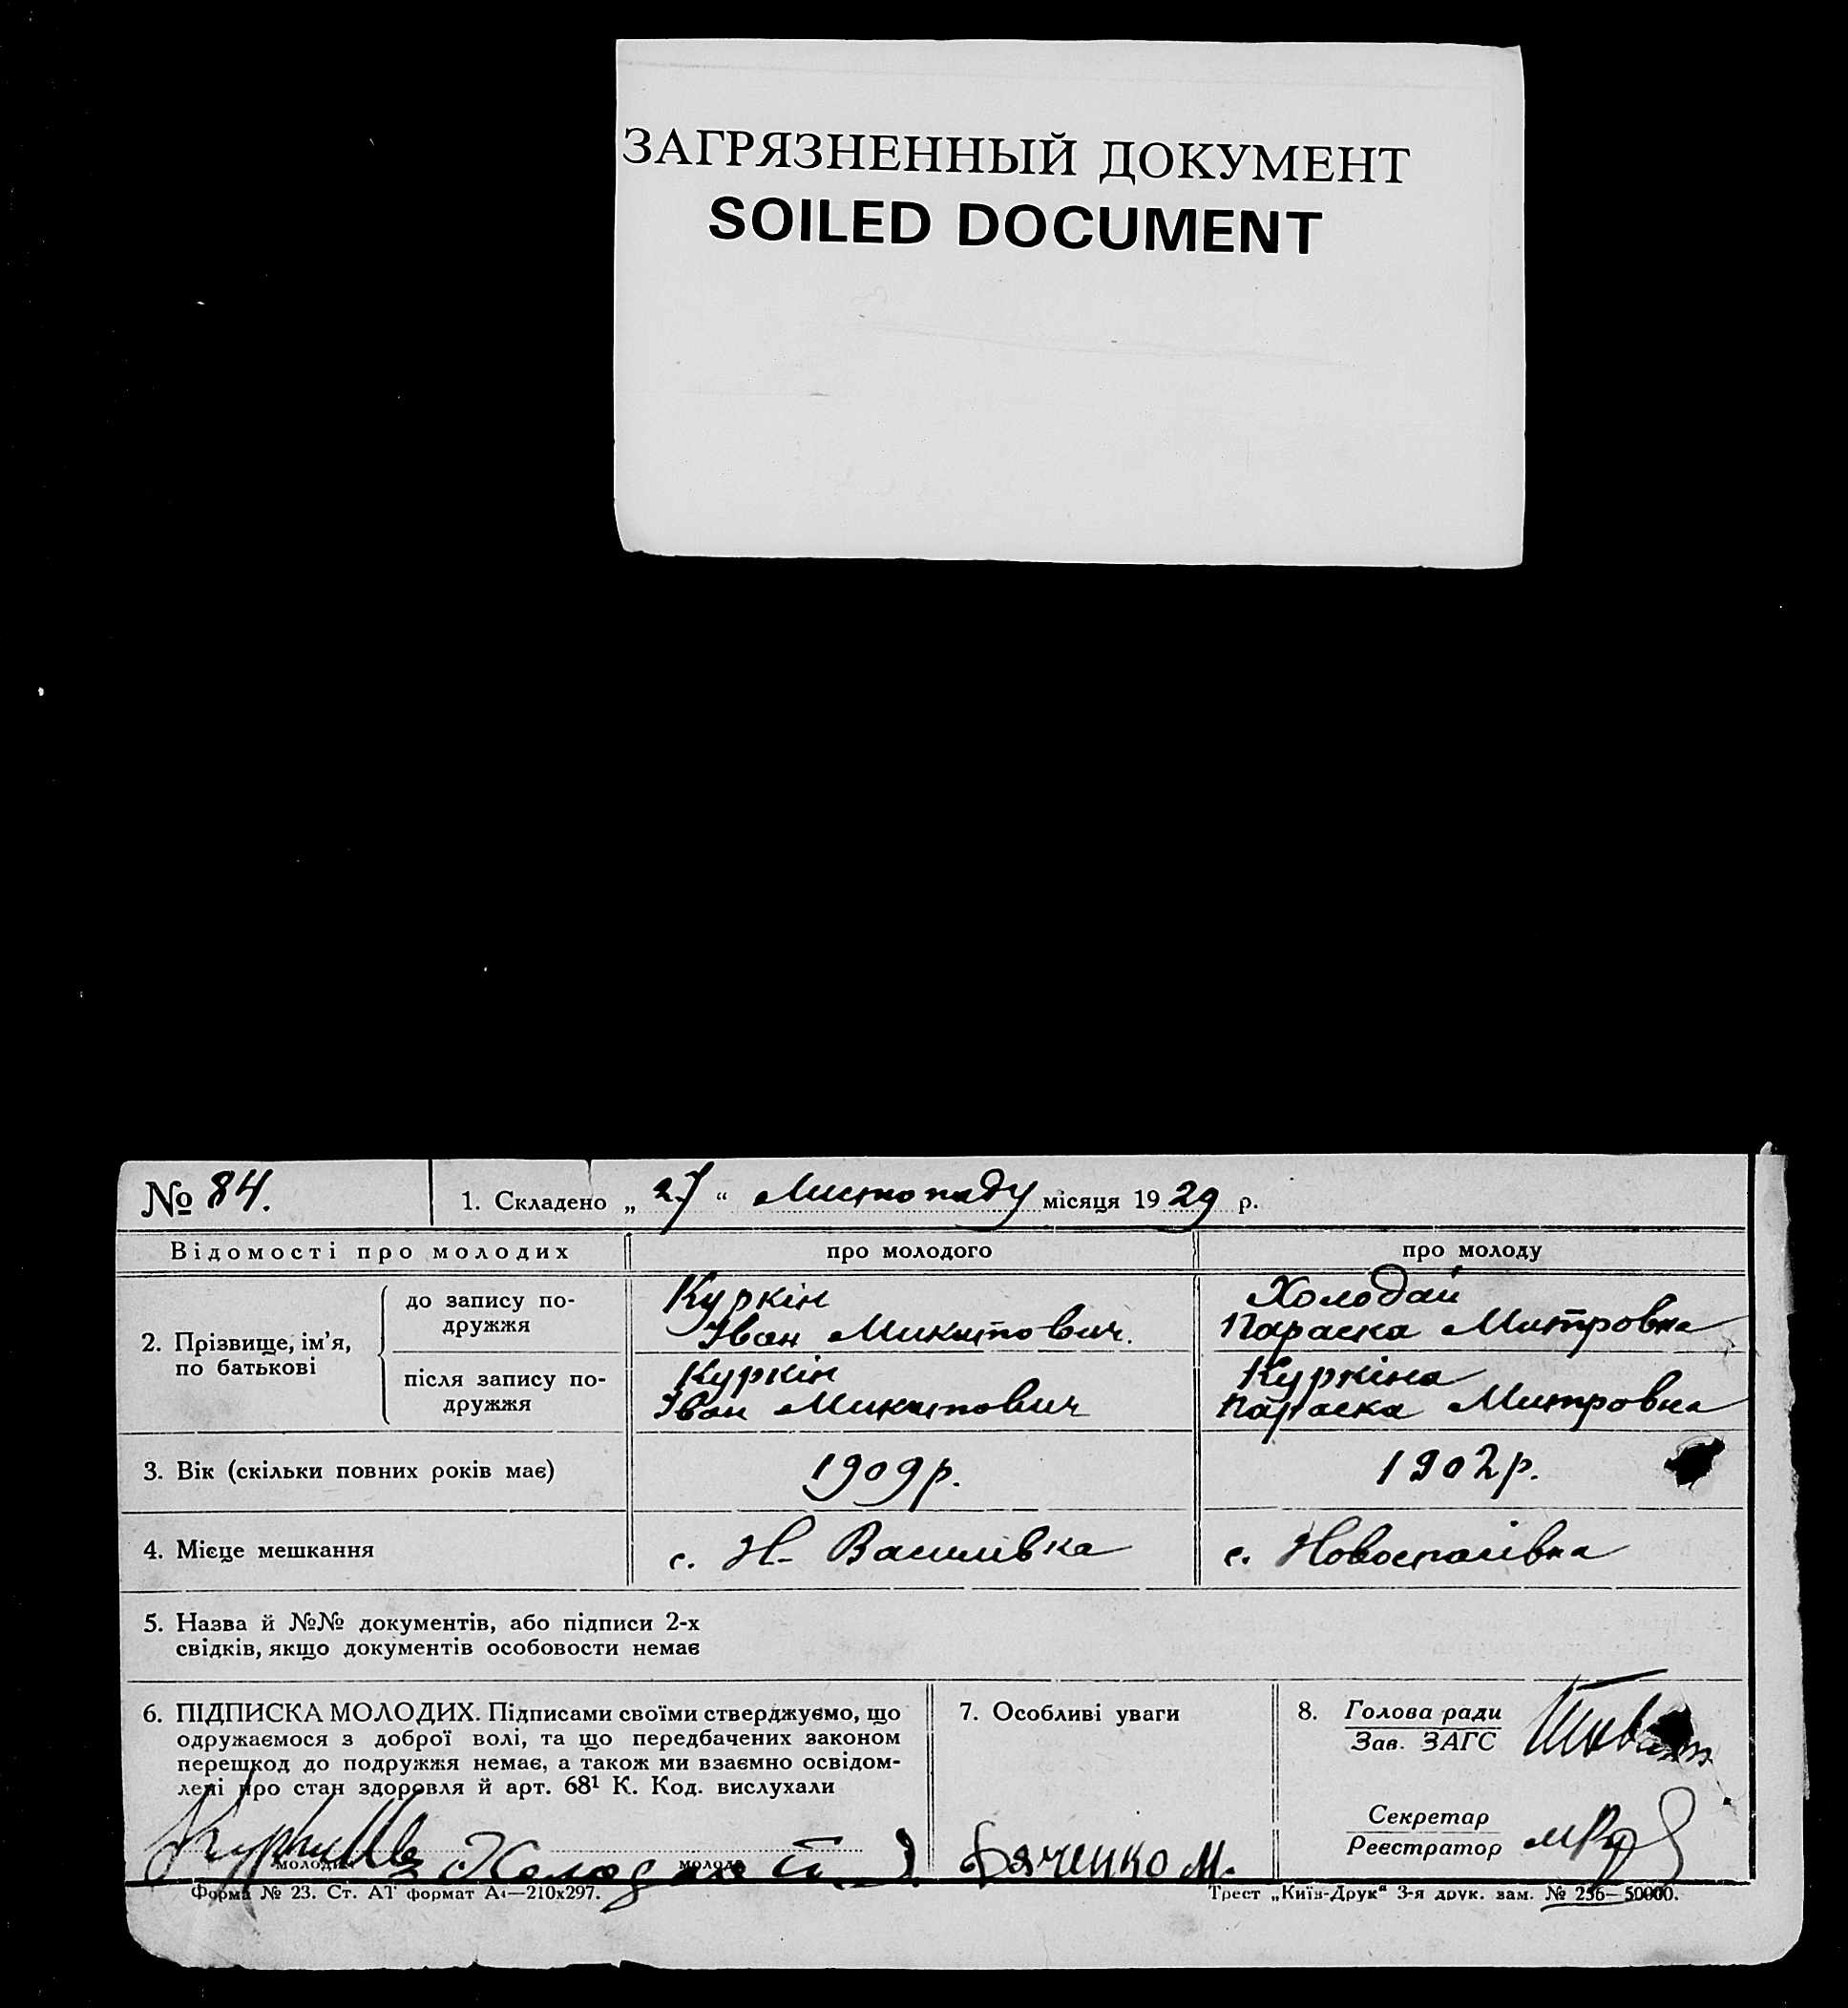 ЗАГРЯЗНЕННЫЙ ДОКУМЕНТ
SOILED DOCUMENT
№ 84.
1. Складено „ 27 “ Листопаду місяця 1929 р.
Відомості про молодих
про молодого
про молоду
2. Прізвище, ім’я, по батькові
до запису по-
дружжя
Куркін
Іван Микитович.
Холодай
Параска Митровна
після запису по-
дружжя
Куркін
Іван Микитович
Куркіна
Параска Митровна
3. Вік (скільки повних років має)
1909 р.
1902 р.
4. Місце мешкання
с. Н- Василівка
с. Новоспасівка
5. Назва й №№ документів, або підписи 2-х
свідків, якщо документів особовости немає
6. ПІДПИСКА МОЛОДИХ. Підписами своїми стверджуємо, що
одружаємося з доброї волі, та що передбачених законом
перешкод до подружжя немає, а також ми взаємно освідом-
лені про стан здоровля й арт. 68¹ К. Код. вислухали
молодий
Холодай
молода
7. Особливі уваги
Дяченко М.
8. Голова ради
Зав. ЗАГС
Секретар
Реєстратор
Форма № 23. Ст. АТ формат А4—210х297.
Трест „Київ-Друк“ 3-я друк. зам. № 256—50000.